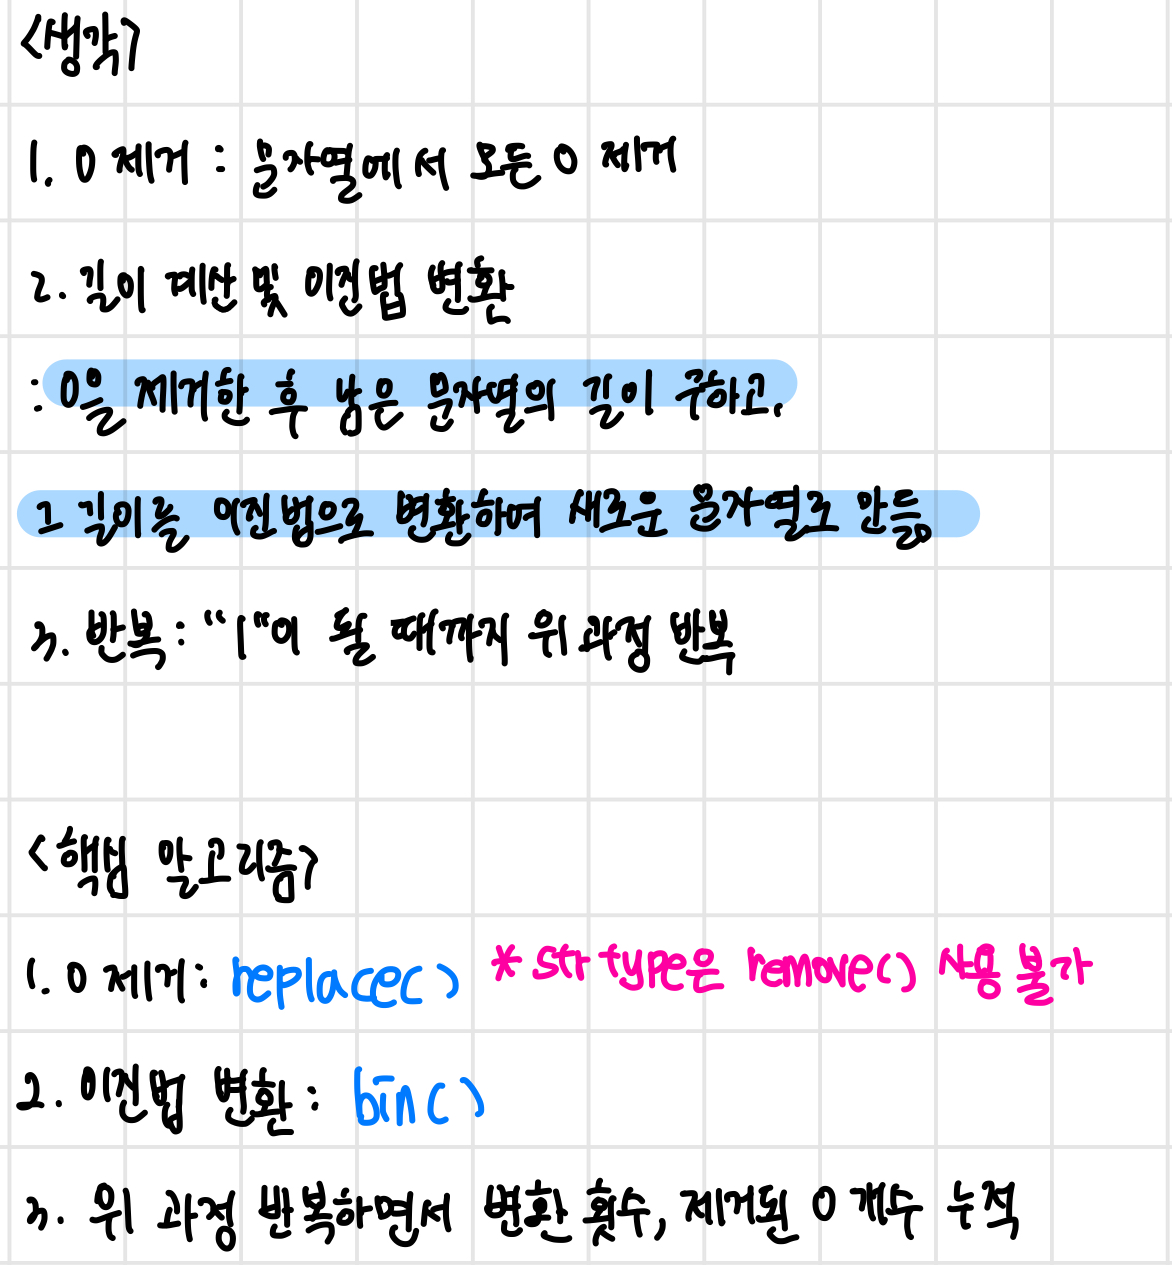 <생각>
1. 0 제거 : 문자열에서 모든 0 제거
2. 길이 계산 및 이진법 변환
: 0을 제거한 후 남은 문자열의 길이 구하고,
그 길이를 이진법으로 변환하여 새로운 문자열로 만듦.
3. 반복 : “1“이 될 때까지 위 과정 반복
<핵심 알고리즘>
1. 0 제거 : replace() * str type은 remove() 사용 불가
2. 이진법 변환 : bin()
3. 위 과정 반복하면서 변환 횟수, 제거된 0 개수 누적